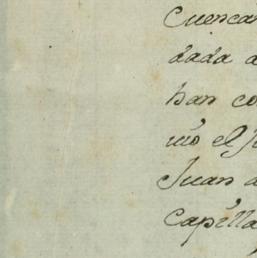 Cuencan
dada a
han co
mó el J
Juan a
Capilla